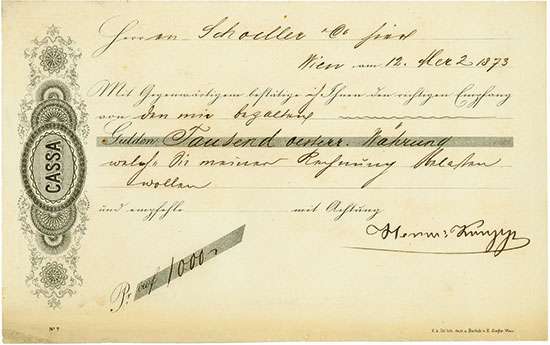 Herren Schoeller & Co hier
Wien am 12. Merz 1873
Mit Gegenwärtigem bestätige ich Ihnen den richtigen Empfang
von den mir bezalten
Gulden Tausend oesterr. Währung
welche Sie meiner Rechnung belasten
wollen
und empfehle mit Achtung
Pr. 1000.-
CASSA